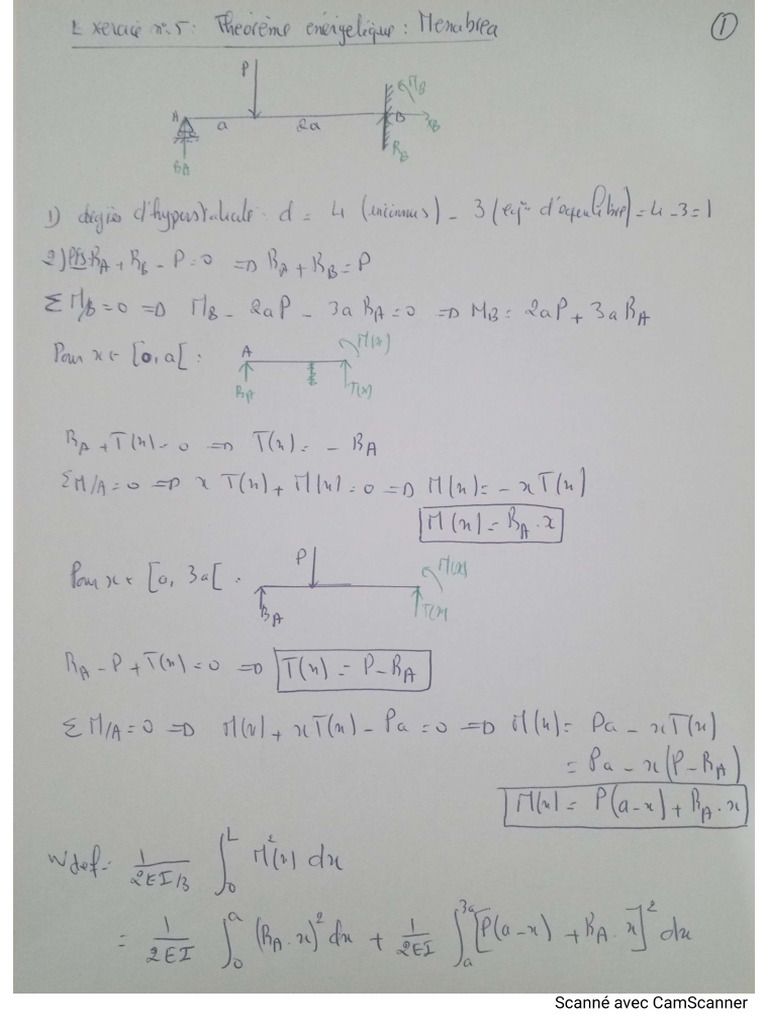 Exercice n°5: Théorème énergétique: Menabrea
①
P
M_B
A
a
2a
B
X_B
R_A
R_B
1) degrés d'hyperstatité: d = 4 (inconnus) - 3 (eq^ns d'équilibre) = 4-3=1
2) PFS R_A + R_B - P = 0 => R_A + R_B = P
ΣM/B = 0 => M_B - 2aP - 3a R_A = 0 => M_B = 2aP + 3a R_A
Pour x ∈ [0, a[ :
A
M(x)
R_A
T(x)
R_A + T(x) = 0 => T(x) = - R_A
ΣM/A = 0 => x T(x) + M(x) = 0 => M(x) = - x T(x)
M(x) = R_A . x
Pour x ∈ [a, 3a[ :
P
M(x)
R_A
T(x)
R_A - P + T(x) = 0 => T(x) = P - R_A
ΣM/A = 0 => M(x) + x T(x) - Pa = 0 => M(x) = Pa - x T(x)
= Pa - x (P - R_A)
M(x) = P(a-x) + R_A . x
W def = 1/2EI_3 ∫_0^L M²(x) dx
= 1/2EI ∫_0^a (R_A . x)² dx + 1/2EI ∫_a^3a [P(a-x) + R_A . x]² dx
Scanné avec CamScanner